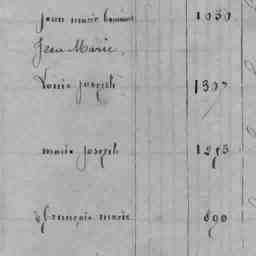 jean marie 1030
Jean Marie,
Louis joseph 1307
marie joseph 1275
françois marie 690